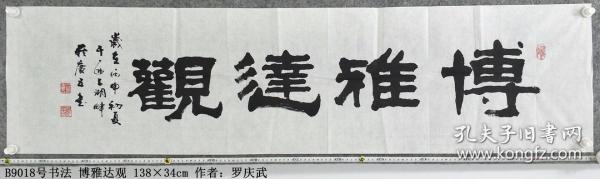 博雅達觀
歲在丙申初夏
上湖畔
孔夫子旧书网
B9018号书法 博雅达观 138×34cm 作者：罗庆武